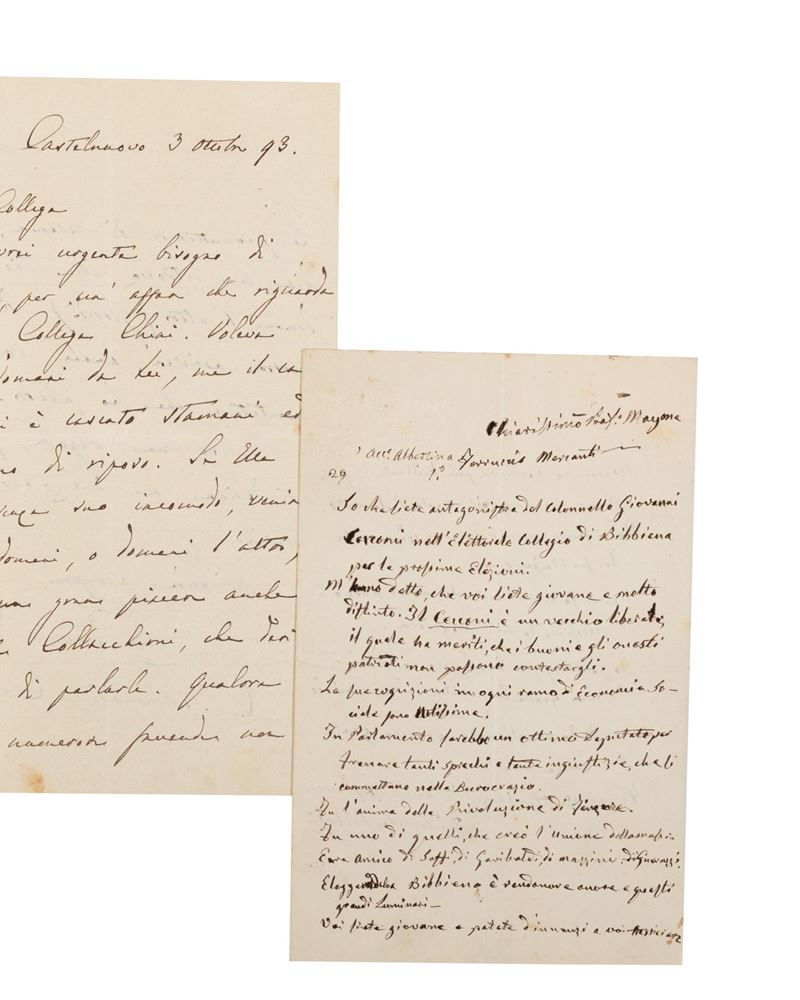 Castelnuovo 3 ottobre 93.
Collega
urgente bisogno di
, per un' affare che riguarda
Collega Chiai. Voleva
domani da Lei, ma il
i è cascato stamani ed
di riposo. Se Ella
suo incomodo, venir
domani, o domani l'altro,
gran piacere anche
Collacchioni, che
di parlarle. Qualora
numerose faccende non
Chiarissimo Prof. Mayona
Acc. Albertina Ferruccio Mercanti
29
So che siete antagonista del Colonnello Giovanni
Cerroni nell'Elettorale Collegio di Bibbiena
per le prossime Elezioni.
M'hanno detto, che voi siete giovane e molto
distinto. Il Cerroni è un vecchio liberale,
il quale ha meriti, che i buoni e gli onesti
patriotti non possono contestargli.
Le sue cognizioni in ogni ramo di Economia So-
ciale sono utilissime.
In Parlamento sarebbe un ottimo Deputato per
frenare tanti sprechi e tante ingiustizie, che si
commettano nella Burocrazia.
Fu l'anima della Rivoluzione di Firenze.
Fu uno di quelli, che creò l'unione della
Era Amico di Saffi, di Garibaldi, di Mazzini di Guerrazzi.
Bibbiena è rendonore onore a questi
grandi Luminari—
Voi siete giovane e potete d'innanzi a voi